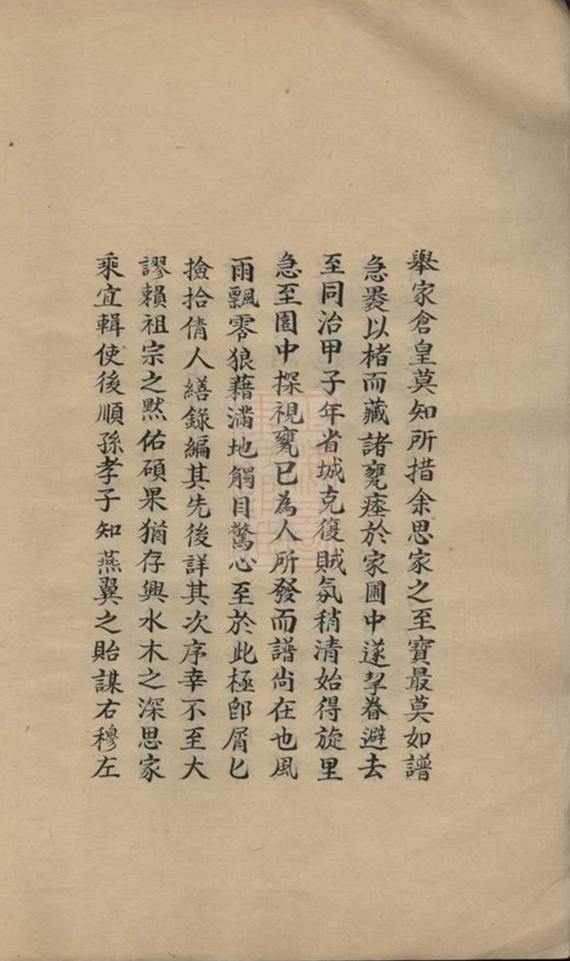 舉家倉皇莫知所措余思家之至寶最莫如譜
急裹以楮而藏諸甕瘞於家圃中遂挈眷避去
至同治甲子年省城克復賊氛稍清始得旋里
急至園中探視甕已為人所發而譜尚在也風
雨飄零狼藉滿地觸目驚心至於此極卽屑匕
撿拾倩人繕錄編其先後詳其次序幸不至大
謬賴祖宗之默佑碩果猶存興水木之深思家
乘宜輯使後順孫孝子知燕翼之貽謀右穆左